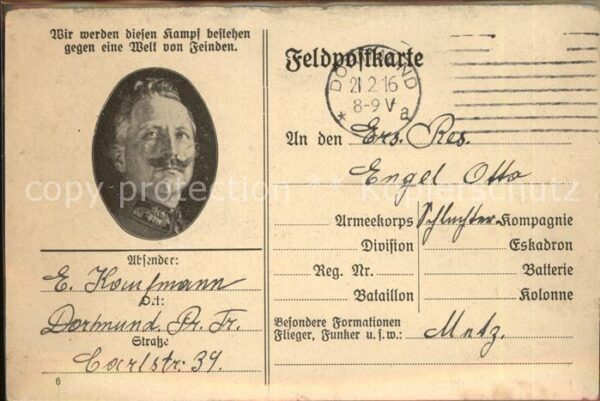 Wir werden diesen Kampf bestehen
gegen eine Welt von Feinden.
Absender:
E. Kaufmann
Ort:
Dortmund. Pr. Tr.
Straße
Carlstr. 34.
6
Feldpostkarte
DORTMUND
21.2.16
8-9 V
* a
An den Ers. Res.
Engel Otto
Armeekorps
Kompagnie
Division
Eskadron
Reg. Nr.
Batterie
Bataillon
Kolonne
Besondere Formationen
Flieger, Funker u.s.w.: Metz.
copy protection ** Kopierschutz